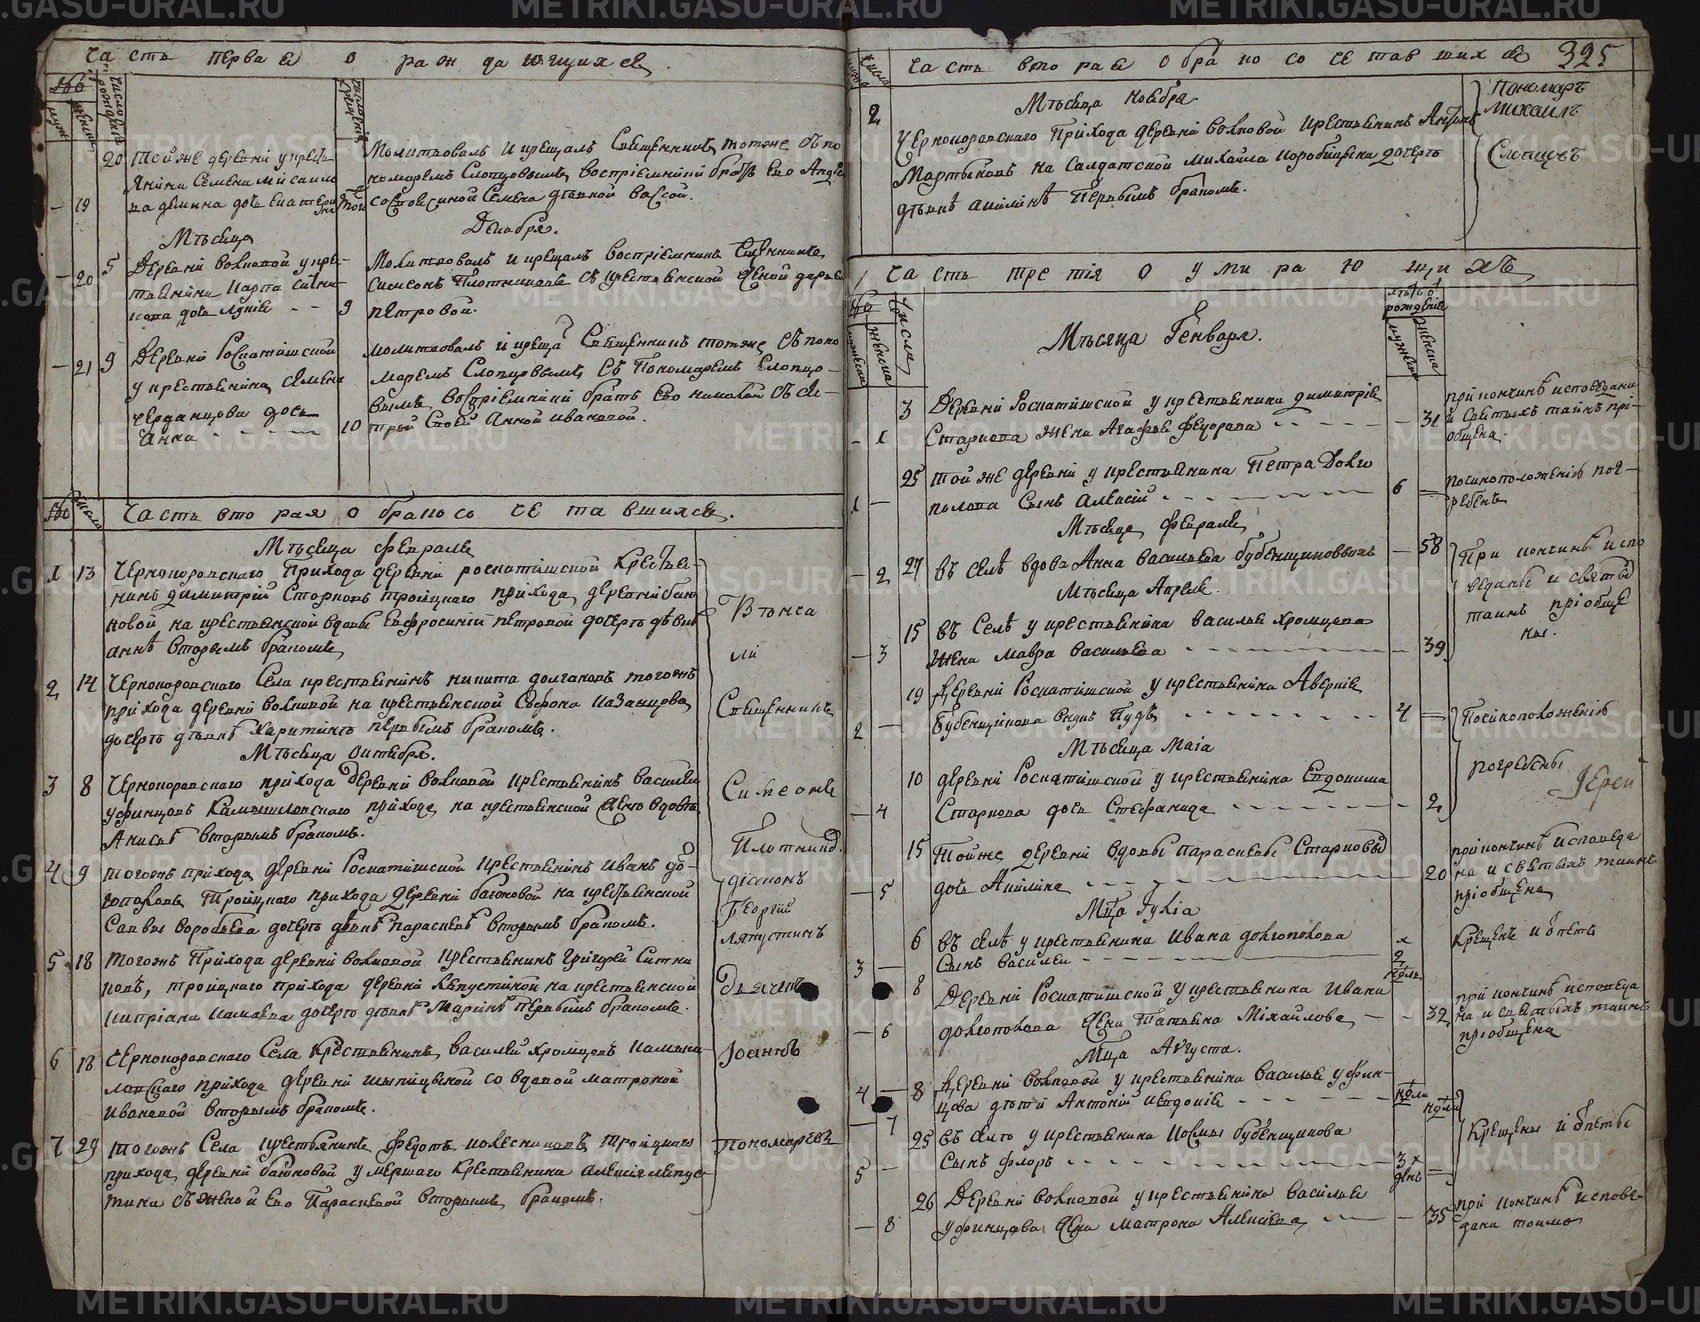 Часть первая о раждающихся
№
мужескъ
женскъ
число рожденія
20 Той же деревни у кресть
янина Семена
19 дочь Екатери
на
Молитвовалъ и крещалъ Священникъ тотже съ по
номаремъ Слопцовымъ, воспріемникъ братъ его Андрей
со своячиной Семена дѣвкой Вассой.
Мѣсяца
Декабря.
20 5 Деревни Волковой у кре-
стьянина Карпа Ситни-
кова дочь Лукія - - 9
Молитвовалъ и крещалъ воспріемникъ Священникъ
Симеонъ Плотниковъ съ крестьянской женой Дарьей
Петровой.
21 9 Деревни Роскатишской
у крестьянина Семена
Черданцова дочь
Анна - - - - 10
Молитвовалъ и креща Священникъ тотже съ поно
маремъ Слопцовымъ, съ Пономаремъ Слопцо-
вымъ, воспріемникъ братъ его Николай съ се-
трой своей Анной Ивановой.
№ число
Часть вторая о бракосочетавшихся.
Мѣсяца февраля
1 13 Чернокоровскаго прихода деревни роскатишской Кресть-
нинъ димитрій Старковъ троицкаго прихода, деревни баю
новой на крестьянской вдовы Евфросиніи петровой дочерь дѣвкѣ
аннѣ вторымъ бракомъ,
2 14 Чернокоровскаго Села крестьянинъ никита долгаповъ тогожъ
прихода деревни волковой на крестьянской Софрона Казанцова,
дочерь дѣвкѣ харитинѣ первымъ бракомъ.
Мѣсяца октября.
3 8 Чернокоровскаго прихода деревни волковой крестьянинъ василей
уфинцовъ Камышловскаго прихода, на крестьянской женѣ вдовѣ
Анисьѣ вторымъ бракомъ.
4 9 Тогожъ прихода деревни Роскатишской крестьянинъ Иванъ до-
гополовъ, Троицкаго прихода деревни баюновой на крестьянской
Саввы воробьева дочерь дѣвкѣ параскевѣ вторымъ бракомъ.
5 18 Тогожъ прихода деревни волковой крестьянинъ григорей Ситни
ковъ, троицкаго прихода деревни Лепустиной на крестьянской
Кипріана Камаева дочерь дѣвкѣ Маринѣ первымъ бракомъ.
6 18 Чернокоровскаго Села Крестьянинъ, василей хромцовъ Камыш
ловскаго прихода деревни шипицыной со вдовой матроной
Ивановой вторымъ бракомъ.
7 29 Тогожъ Села крестьянинъ федотъ колесниковъ троицкаго
прихода, деревни баюновой умершаго крестьянина алексія лепус
тина съ женой его Параскевой вторымъ, бракомъ.
Втонча
ли
Священникъ
Симеонъ
Плотников.
діаконъ
Георгій
Ляпустинъ
Дьячекъ
Іоаннъ
Пономаревъ
Часть вторая о бракосочетавшихся 325
Мѣсяца Ноября.
2 Чернокоровскаго прихода деревни волковой крестьянинъ Антипъ
Мартыновъ на Салдатской михайла коробицына дочерь
дѣвкѣ акилинѣ первымъ бракомъ.
Пономарь
Михаилъ
Слопцовъ
Часть третія о умирающихъ
№ число
лѣто
рожденія
Мѣсяца Генваря.
- 1 3 Деревни Роскатишской у крестьянина димитрія
Старкова жена Агафья федорова - - 31
при кончинѣ исповѣдана
и святыхъ тайнъ прі-
общена.
1 - 25 той же деревни у крестьянина Петра Долго
полова сынъ алексій - - 6
посиноположенія пог-
ребенъ
Мѣсяца февраля
- 2 27 въ селѣ вдова Анна васильева бубенщиковыхъ - 58
При кончинѣ испо
веданы и святых
таинъ пріобще
ны.
Мѣсяца Апреля.
- 3 15 въ Селѣ у крестьянина василья хромцова
жена мавра васильева - - 39
2 - 19 деревни Роскатишской у крестьянина Аверкія
бубенщикова внукъ Пудъ, - - 4
Посиноположенія
погребены
Іерей
Мѣсяца Маія
- 4 10 деревни Роскатишской у крестьянина Евдокима
Старкова дочь Стефанида - - 2
- 5 15 Тойже деревни вдовы параскевы Старковы
дочь Акилина - - 20
при кончинѣ исповеда
на и святыхъ таинъ
пріобщена
Мца Іулія
3 - 6 въ селѣ у крестьянина Ивана долгополова
Сынъ василей - - 2 нѣдль
Крещенъ и отпетъ
- 6 8 Деревни Роскатишской у крестьянина Ивана
долгополова жена Татьяна Михайлова, - 32
при кончинѣ исповеда
на и святыхъ таинъ
пріобщена
Мца Августа.
4 - 8 деревни волковой у крестьянина василья уфин-
- 7 цова дѣти Антоній и Евдокія - - нѣдли нѣдли
5 - 25 въ селѣ у крестьянина Козмы бубенщикова
Сынъ флоръ - - 3х днѣ
Крещены и отпеты
- 8 26 Деревни волковой у крестьянина василья
уфинцова жена Матрона Алексеева, - - 35
при кончинѣ исповѣ-
дана токмо